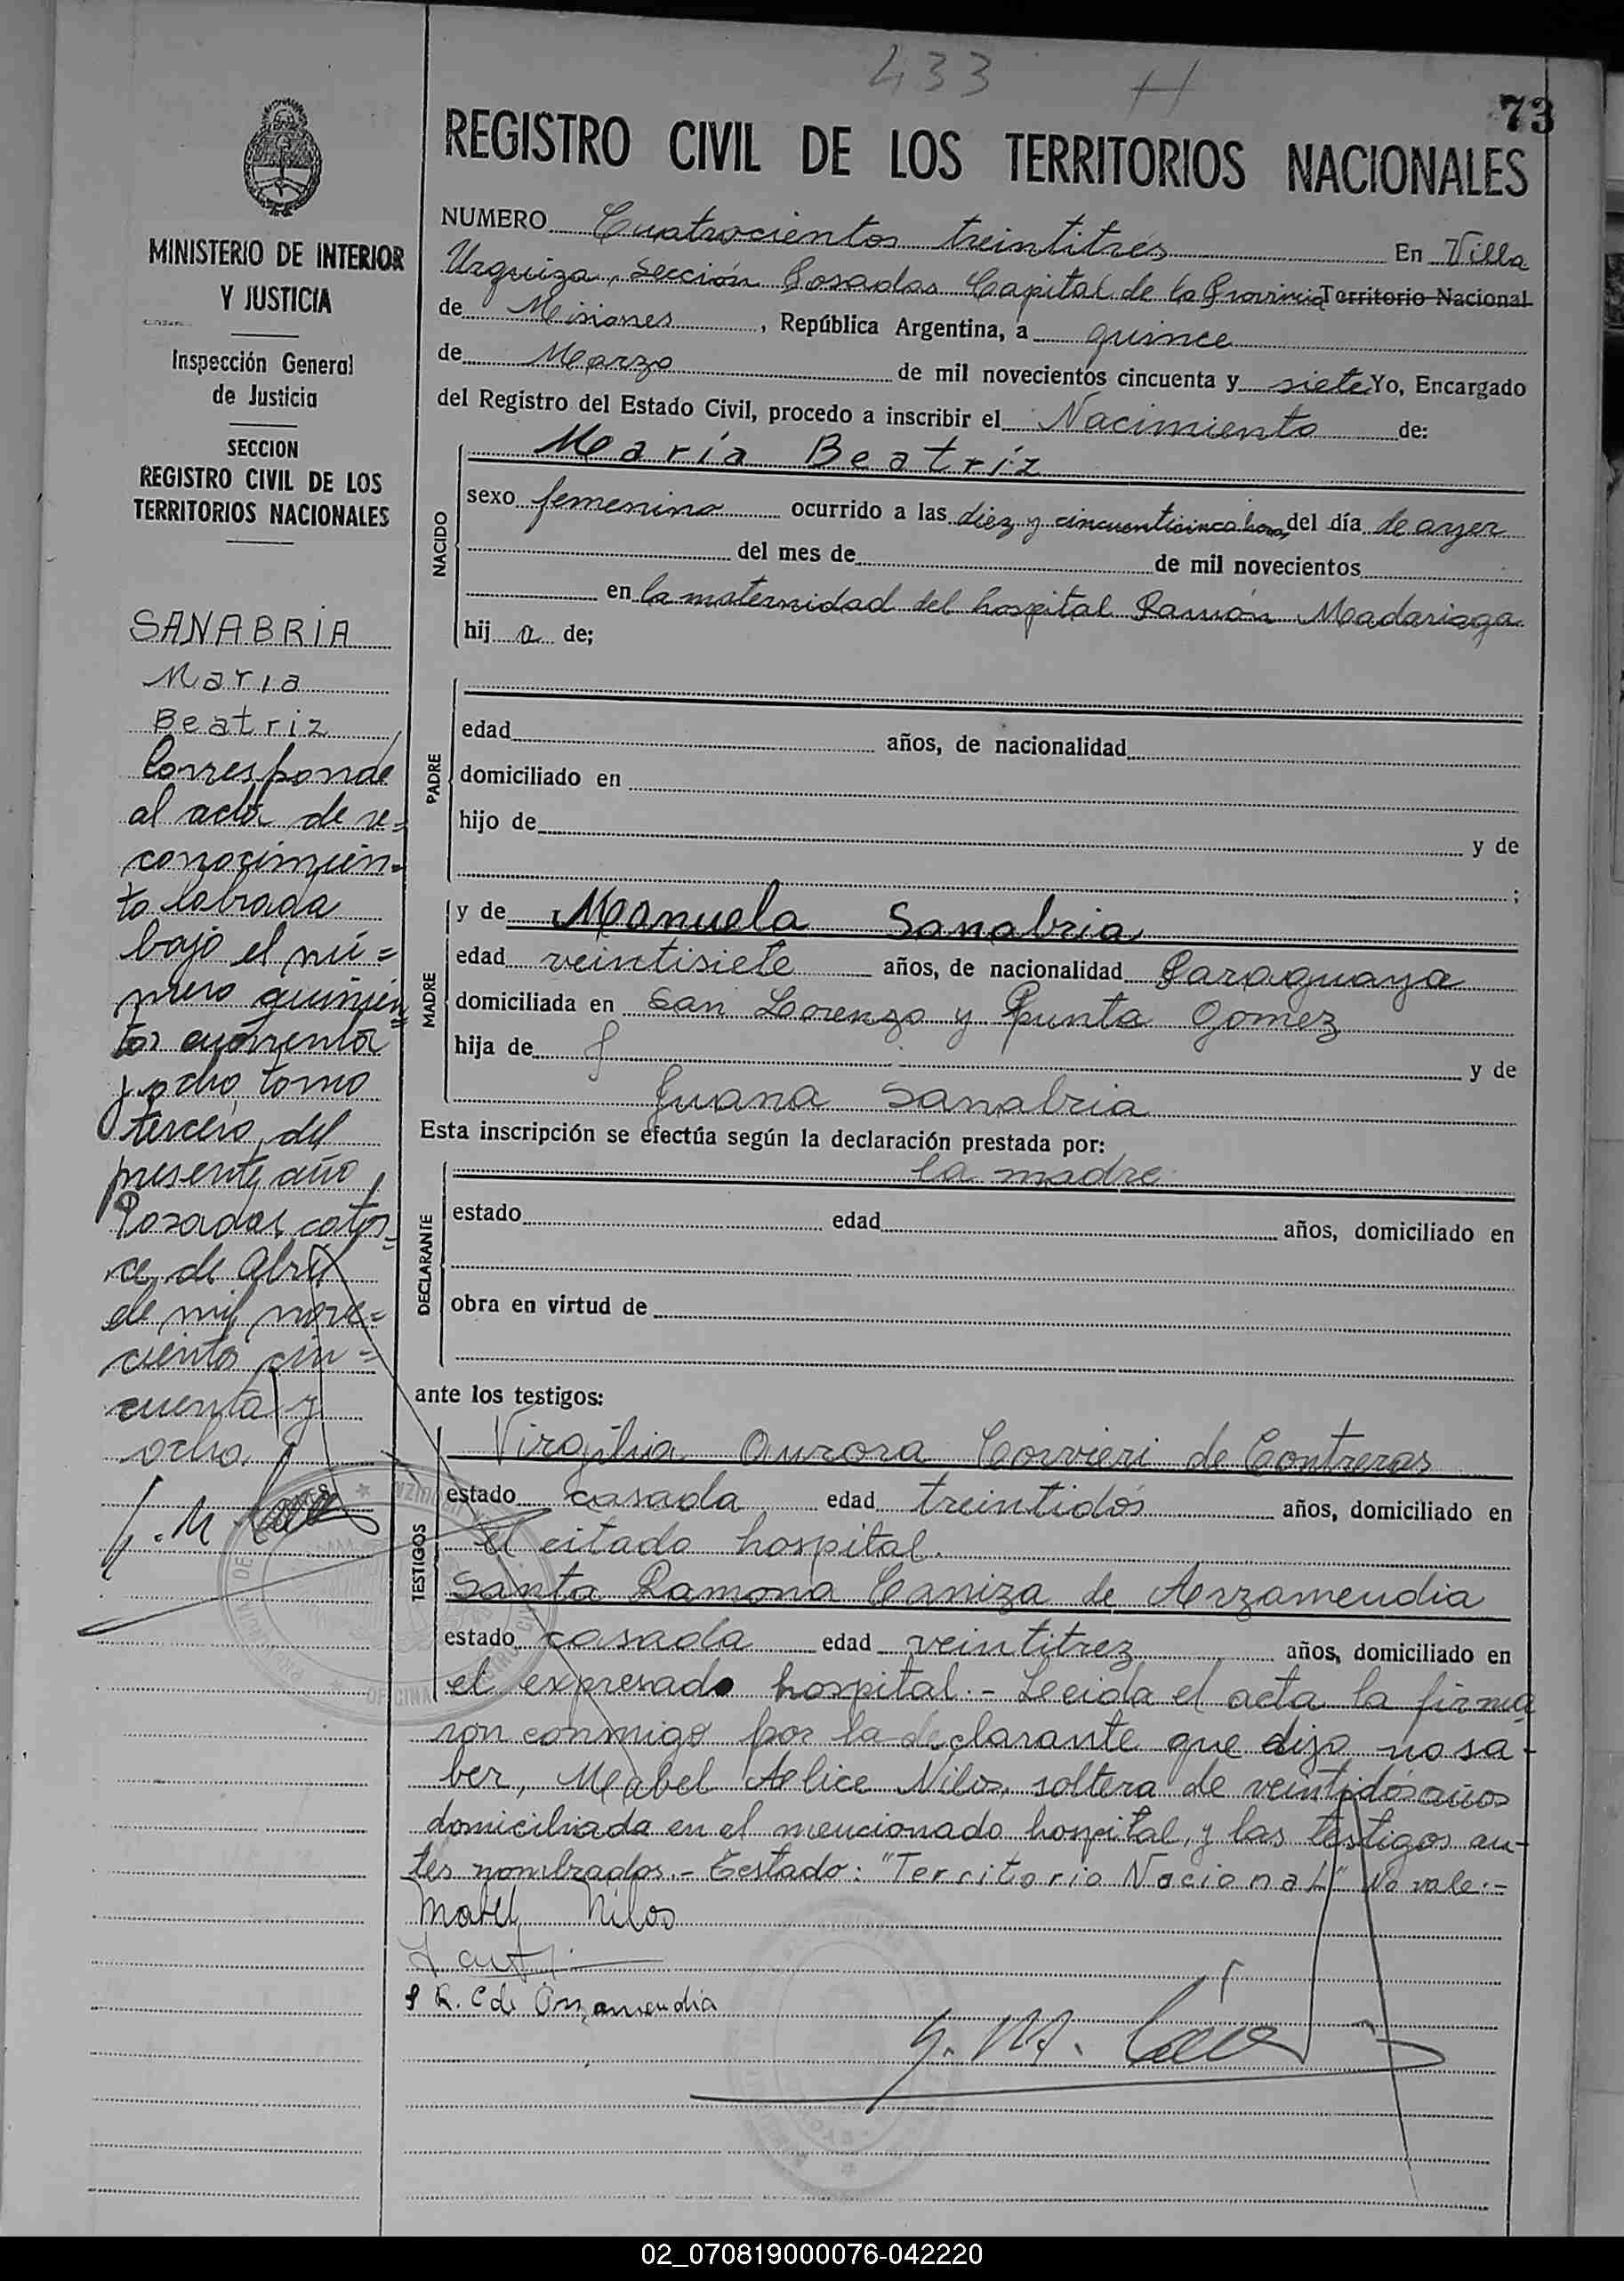 433 H
73
REGISTRO CIVIL DE LOS TERRITORIOS NACIONALES
MINISTERIO DE INTERIOR
Y JUSTICIA
Inspección General
de Justicia
SECCION
REGISTRO CIVIL DE LOS
TERRITORIOS NACIONALES
SANABRIA
Maria
Beatriz
Corresponde
al acta de re=
conocimien=
to labrada
bajo el nú=
mero quinien=
tos cuarenta
y ocho tomo
tercero del
presente año
Posadas, cator=
ce de abril
de mil nove=
cientos cin=
cuenta y
ocho
NUMERO Cuatrocientos treintitrés En Villa
Urquiza, Sección Posadas Capital de la Provincia Territorio Nacional
de Misiones, República Argentina, a quince
de Marzo de mil novecientos cincuenta y siete Yo, Encargado
del Registro del Estado Civil, procedo a inscribir el Nacimiento de:
NACIDO
María Beatríz
sexo femenino ocurrido a las diez y cincuenticinco horas del día de ayer
del mes de de mil novecientos
en la maternidad del hospital Ramón Madariaga
hij a de;
PADRE
edad años, de nacionalidad
domiciliado en
hijo de y de
;
MADRE
y de Manuela Sanabria
edad veintisiete años, de nacionalidad Paraguaya
domiciliada en San Lorenzo y Punta Gomez
hija de y de
Juana Sanabria
Esta inscripción se efectúa según la declaración prestada por:
DECLARANTE
la madre
estado edad años, domiciliado en
obra en virtud de
ante los testigos:
TESTIGOS
Virgilia Aurora Corvieri de Contreras
estado casada edad treintidós años, domiciliado en
el citado hospital.
Santa Ramona Caniza de Arzamendia
estado casada edad veintitrez años, domiciliado en
el expresado hospital.- Leeida el acta la firma
ron conmigo por la declarante que dijo no sa-
ber, Mabel Alice Nilos, soltera de veintidós años
domiciliada en el mencionado hospital, y las testigos an-
tes nombrados.- Testado: "Territorio Nacional" No vale.-
Mabel Nilos
S R. C de Arzamendia
02_070819000076-042220